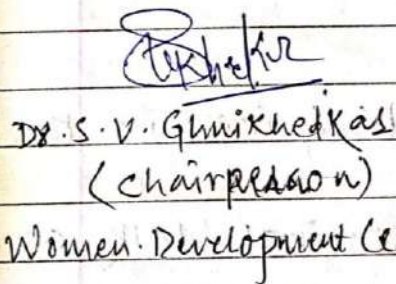 Dr. S. V. Ghuikhedkar
(Chairperson)
Women. Development Ce